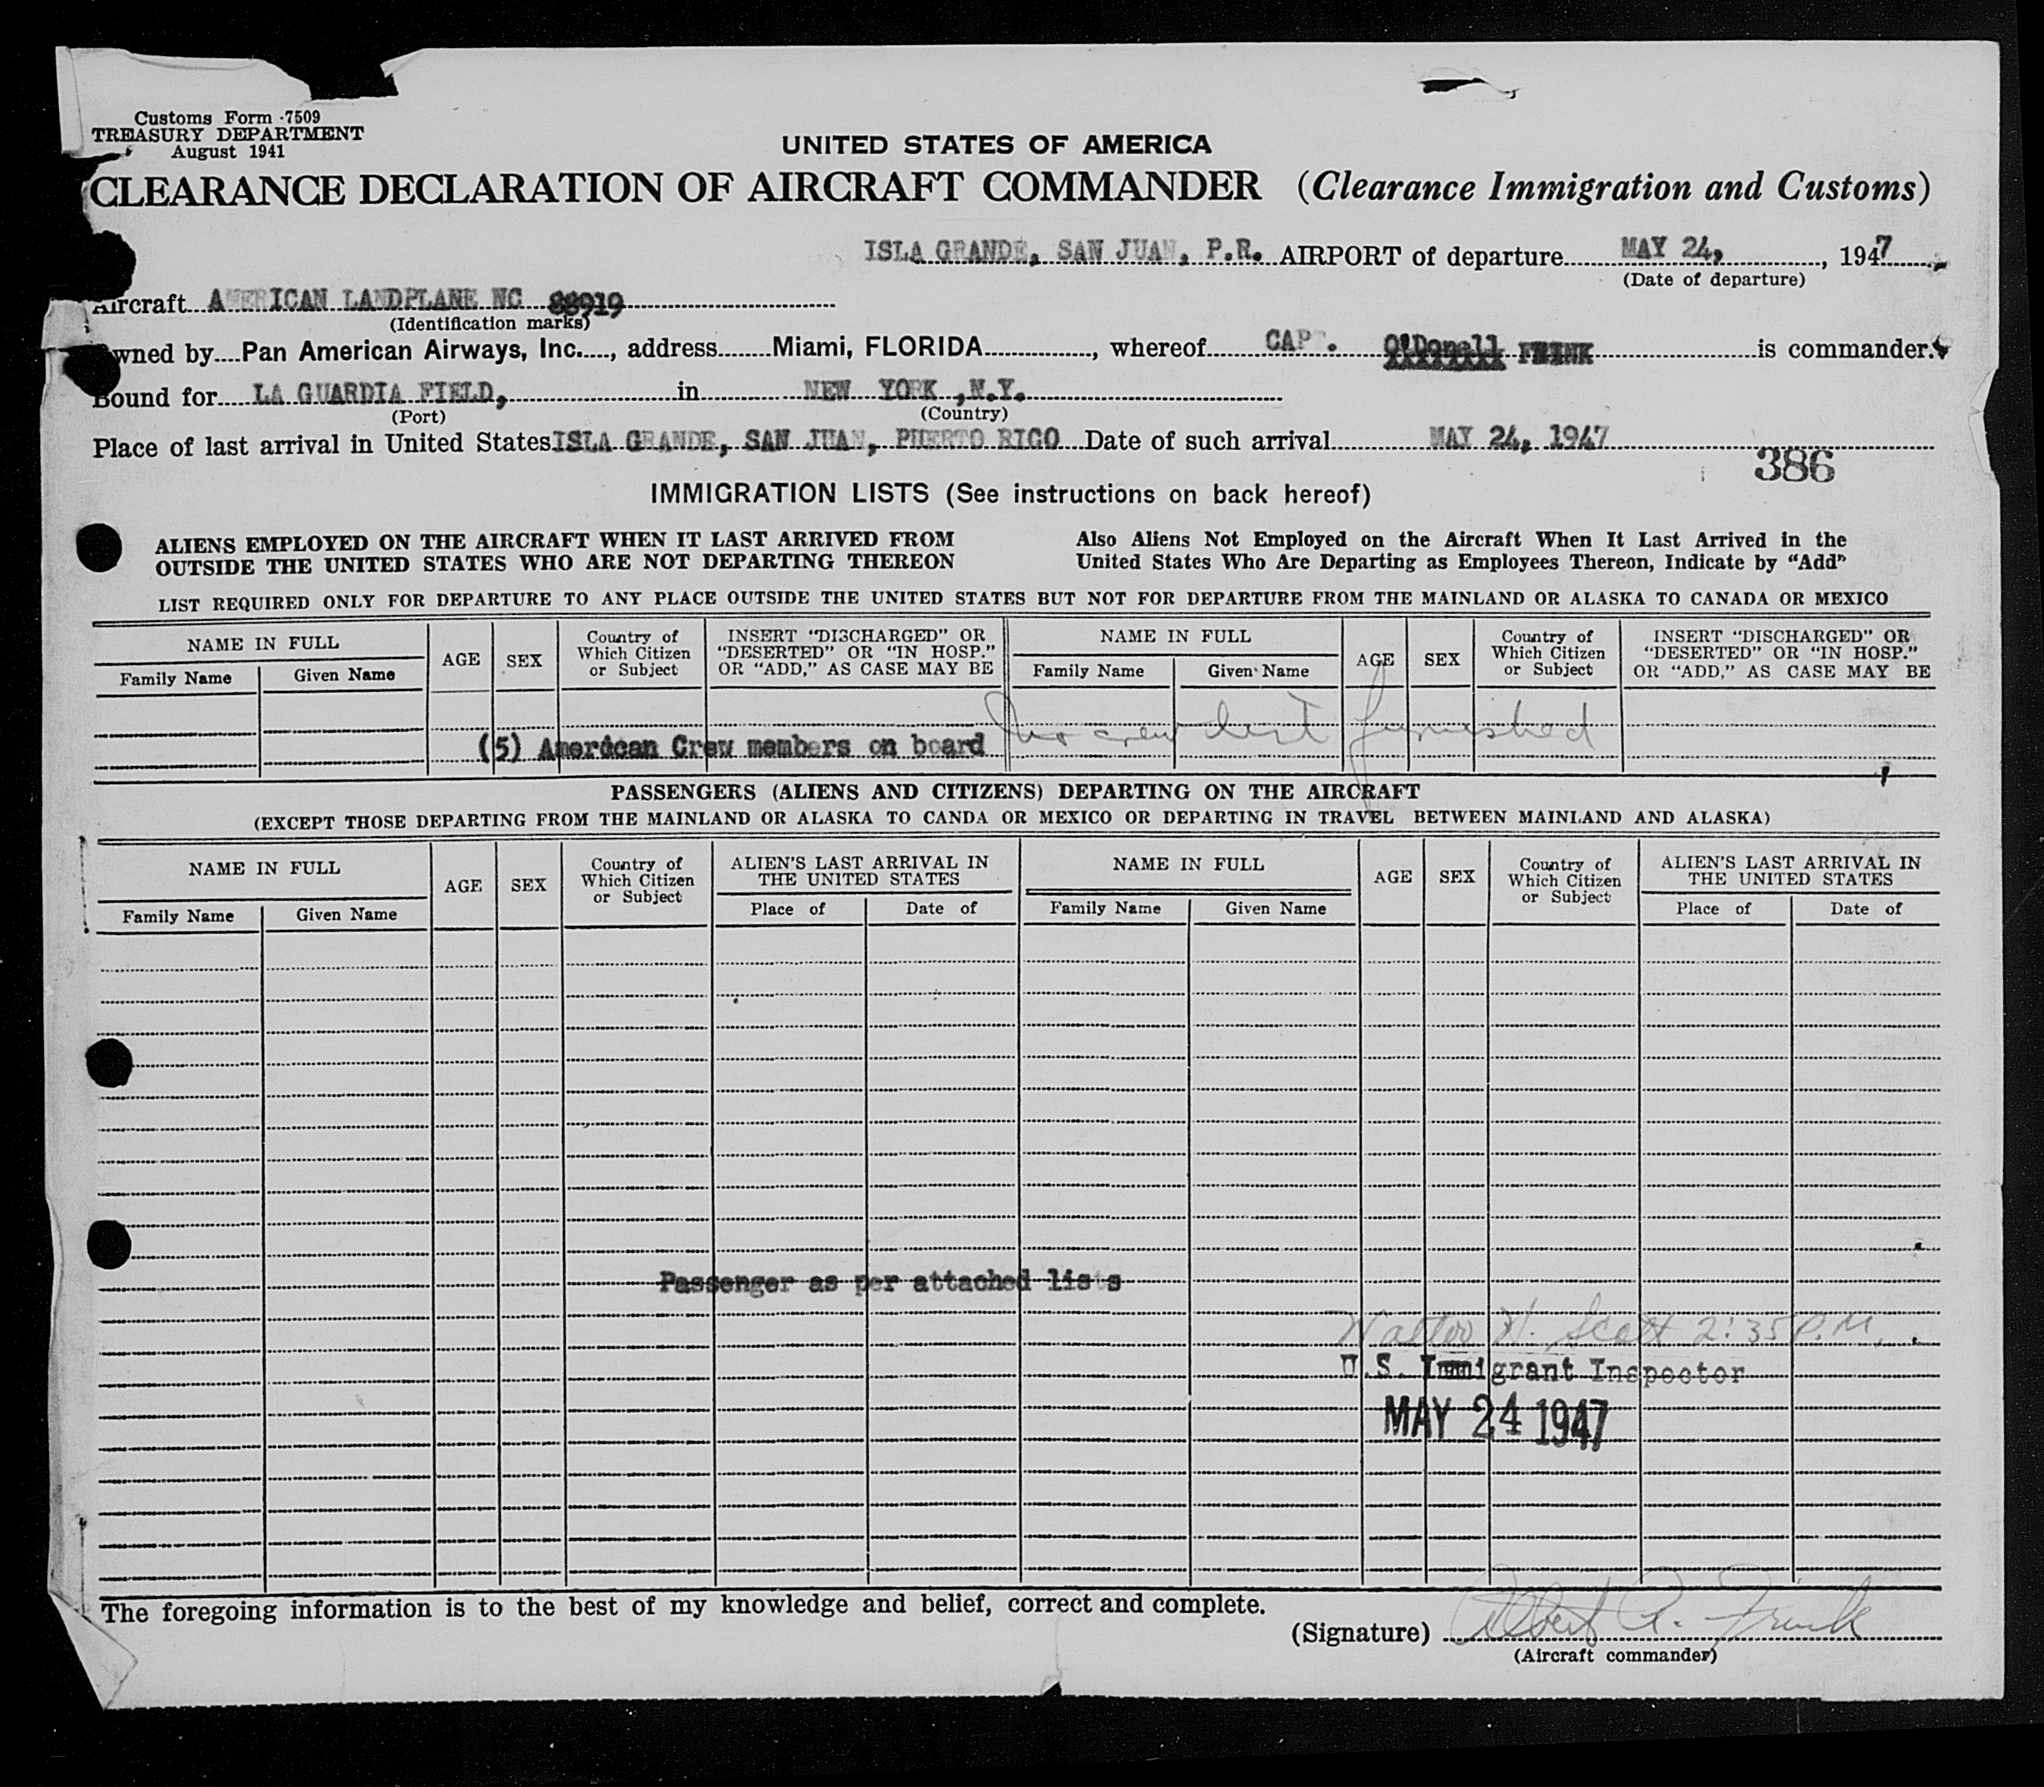 Customs Form 7509
TREASURY DEPARTMENT
August 1941
UNITED STATES OF AMERICA
CLEARANCE DECLARATION OF AIRCRAFT COMMANDER (Clearance Immigration and Customs)
ISLA GRANDE, SAN JUAN, P.R. AIRPORT of departure MAY 24, , 1947
(Date of departure)
Aircraft AMERICAN LANDPLANE NC 88919
(Identification marks)
Owned by Pan American Airways, Inc. , address Miami, FLORIDA , whereof CAPT. O'Donell FRINK is commander.
Bound for LA GUARDIA FIELD, in NEW YORK ,N.Y.
(Port) (Country)
Place of last arrival in United States ISLA GRANDE, SAN JUAN, PUERTO RICO Date of such arrival MAY 24, 1947
386
IMMIGRATION LISTS (See instructions on back hereof)
ALIENS EMPLOYED ON THE AIRCRAFT WHEN IT LAST ARRIVED FROM
OUTSIDE THE UNITED STATES WHO ARE NOT DEPARTING THEREON
Also Aliens Not Employed on the Aircraft When It Last Arrived in the
United States Who Are Departing as Employees Thereon, Indicate by "Add"
LIST REQUIRED ONLY FOR DEPARTURE TO ANY PLACE OUTSIDE THE UNITED STATES BUT NOT FOR DEPARTURE FROM THE MAINLAND OR ALASKA TO CANADA OR MEXICO
NAME IN FULL
Family Name Given Name
AGE SEX
Country of
Which Citizen
or Subject
INSERT "DISCHARGED" OR
"DESERTED" OR "IN HOSP."
OR "ADD," AS CASE MAY BE
NAME IN FULL
Family Name Given Name
AGE SEX
Country of
Which Citizen
or Subject
INSERT "DISCHARGED" OR
"DESERTED" OR "IN HOSP."
OR "ADD," AS CASE MAY BE
(5) Amerdcan Crew members on board No crew list furnished
PASSENGERS (ALIENS AND CITIZENS) DEPARTING ON THE AIRCRAFT
(EXCEPT THOSE DEPARTING FROM THE MAINLAND OR ALASKA TO CANDA OR MEXICO OR DEPARTING IN TRAVEL BETWEEN MAINLAND AND ALASKA)
NAME IN FULL
Family Name Given Name
AGE SEX
Country of
Which Citizen
or Subject
ALIEN'S LAST ARRIVAL IN
THE UNITED STATES
Place of Date of
NAME IN FULL
Family Name Given Name
AGE SEX
Country of
Which Citizen
or Subject
ALIEN'S LAST ARRIVAL IN
THE UNITED STATES
Place of Date of
Passenger as per attached lists
Walter H. Scott 2:35 P.M.
U.S. Immigrant Inspector
MAY 24 1947
The foregoing information is to the best of my knowledge and belief, correct and complete.
(Signature) Albert R. Frink
(Aircraft commander)